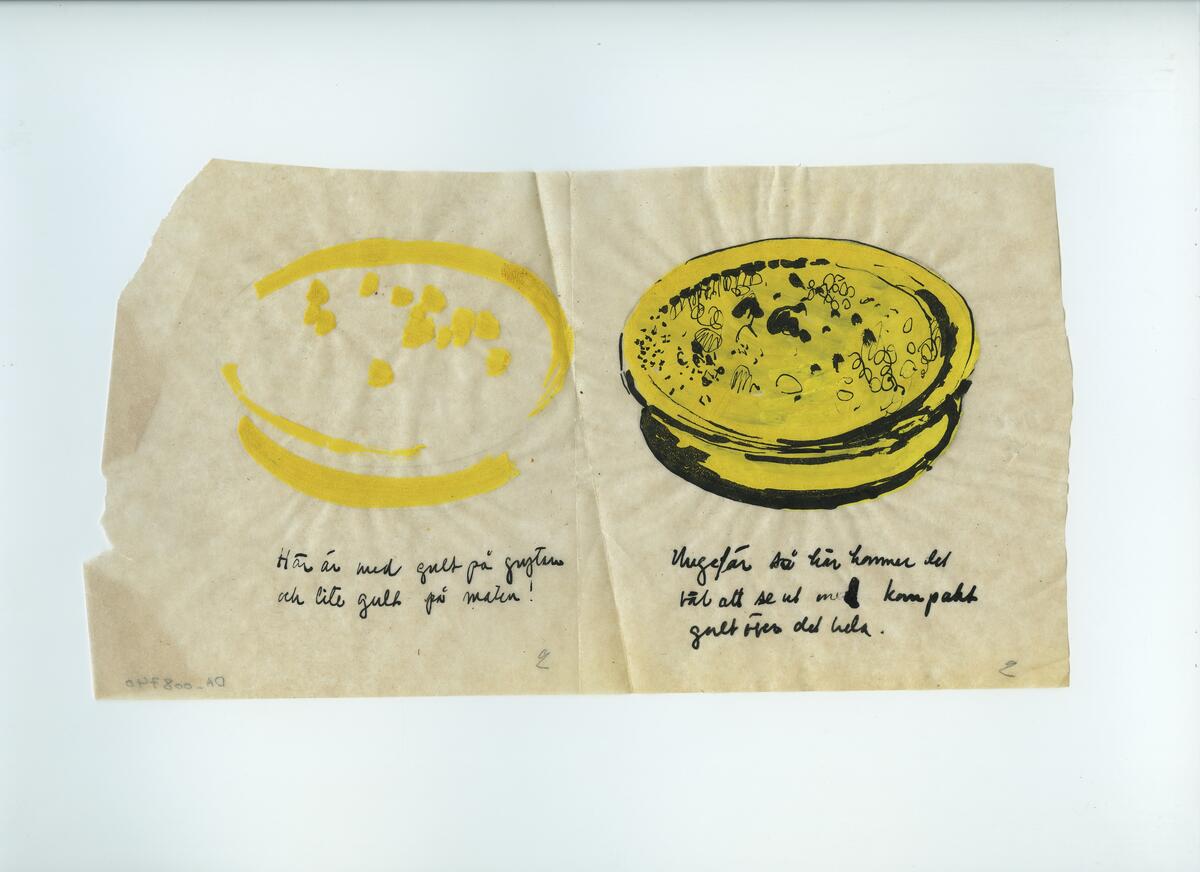 Här är med gult på grytan
och lite gult på maten!
Ungefär så här kommer det
väl att se ut med kompakt
gult över det hela.
2
2
DA-008740